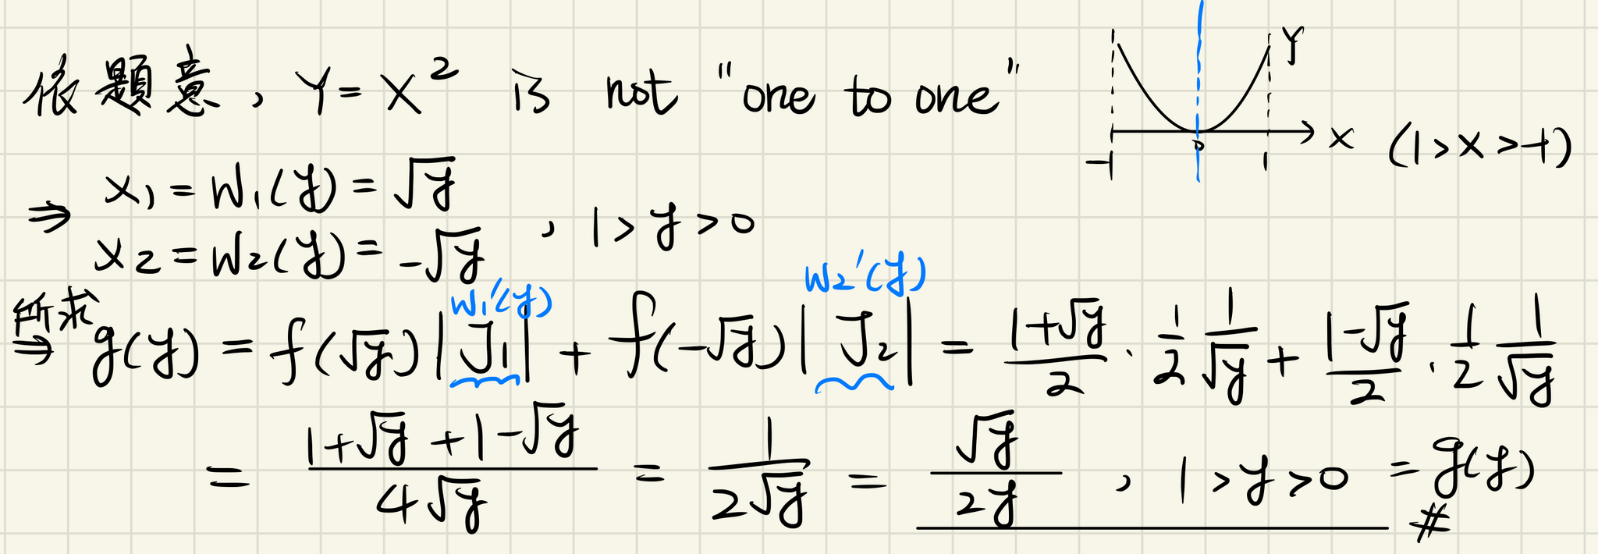 依題意, Y = X² is not "one to one"
Y
-1 0 1 X (1 > X > -1)
⇒ x₁ = W₁(y) = √y
x₂ = W₂(y) = -√y , 1 > y > 0
W₁'(y) W₂'(y)
所求
⇒ g(y) = f(√y) |J₁| + f(-√y) |J₂| = (1+√y)/2 · 1/2 1/√y + (1-√y)/2 · 1/2 1/√y
= (1+√y+1-√y)/(4√y) = 1/(2√y) = √y/(2y) , 1 > y > 0 = g(y)
#